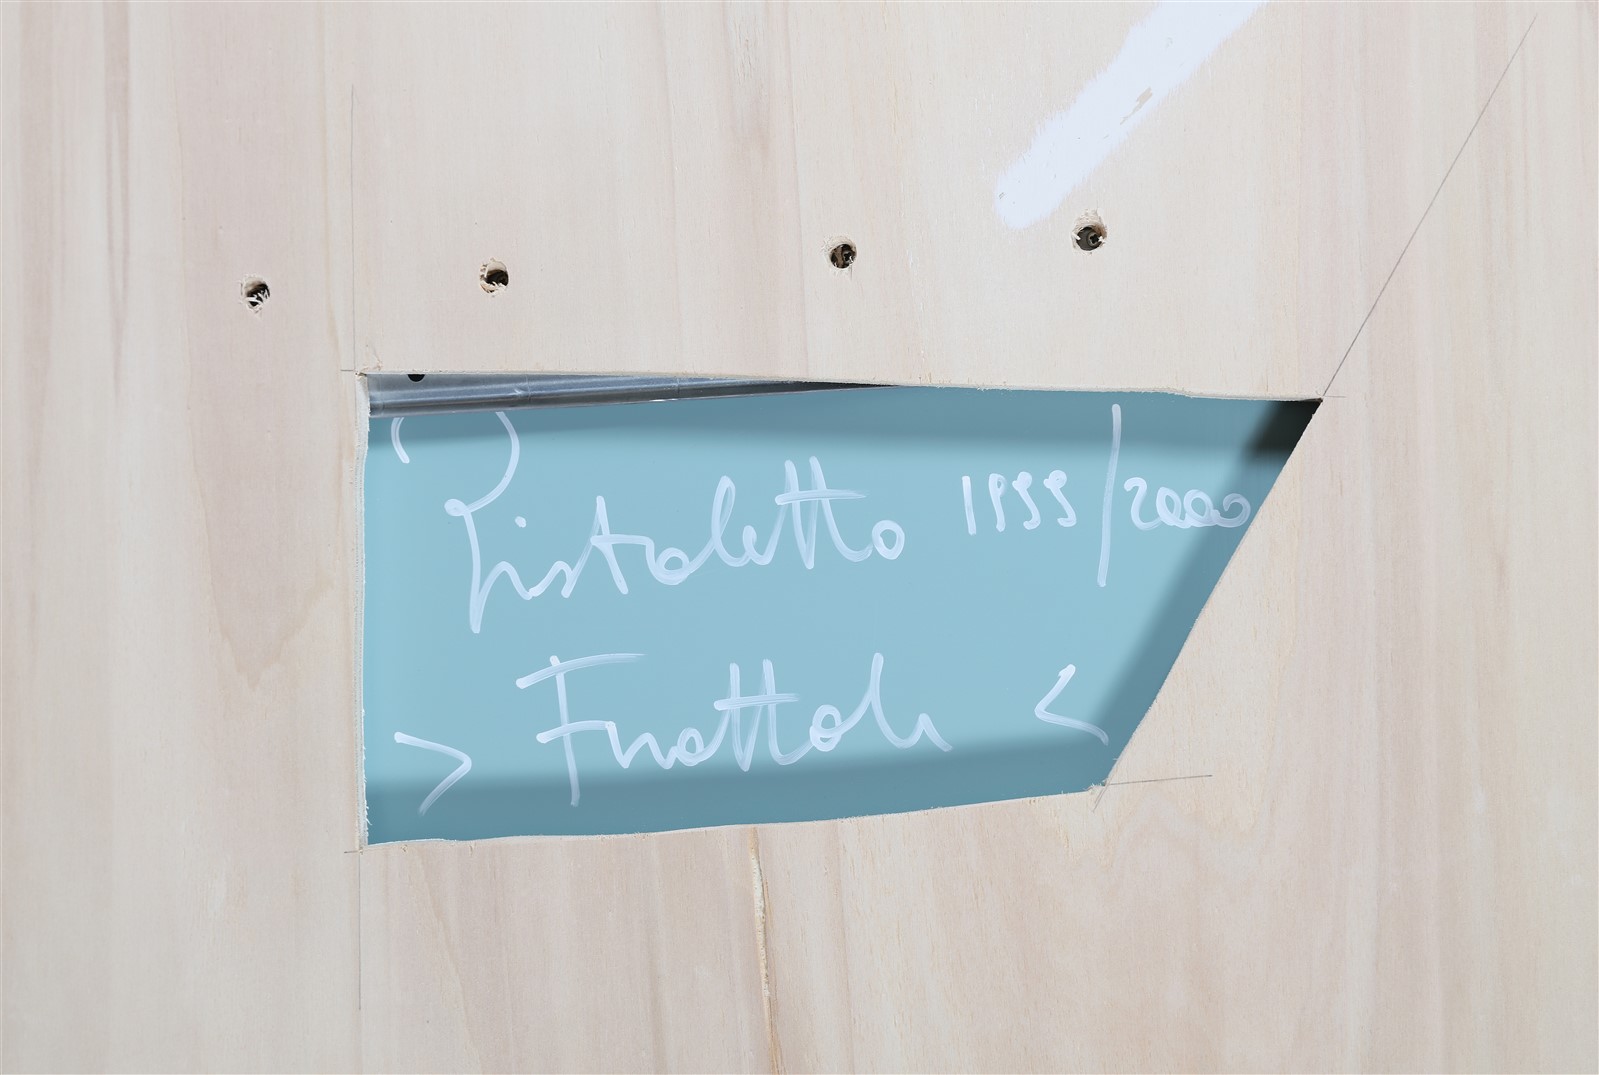 Pistoletto 1999/2000
> Frattali <